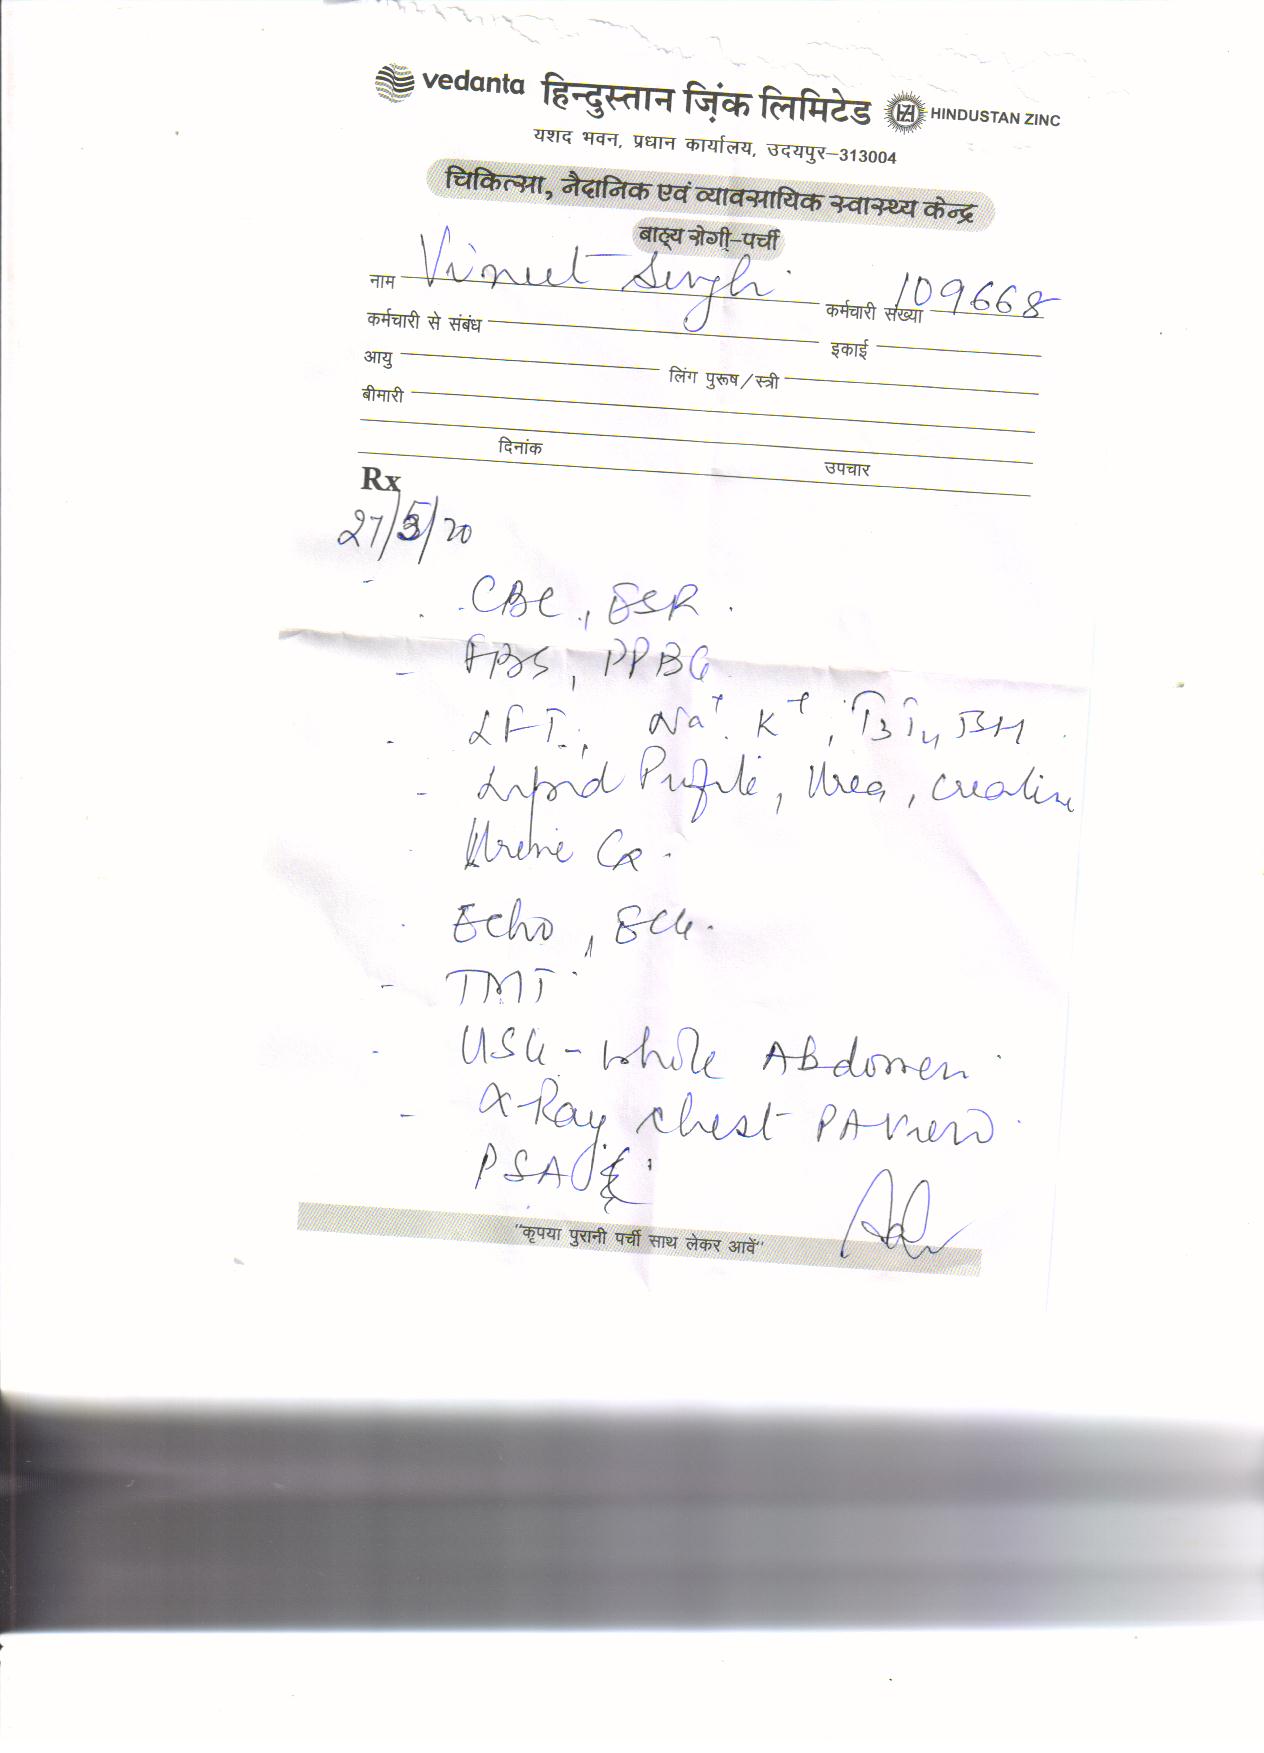 vedanta हिन्दुस्तान ज़िंक लिमिटेड HINDUSTAN ZINC
यशद भवन, प्रधान कार्यालय, उदयपुर–313004
चिकित्सा, नैदानिक एवं व्यावसायिक स्वास्थ्य केन्द्र
बाह्य रोगी–पर्ची
नाम Vineet Singh कर्मचारी संख्या 109668
कर्मचारी से संबंध इकाई
आयु लिंग पुरूष/स्त्री
बीमारी
दिनांक उपचार
Rx
27/5/20
CBC, ESR.
- FBS, PPBG
- LFT, Na+ K+, T3 T4 TSH
- Lipid Profile, Urea, creatine
Urine CR.
Echo, ECG.
- TMT
- USG - whole Abdomen
- X-Ray chest PA view
PSA
"कृपया पुरानी पर्ची साथ लेकर आवें"